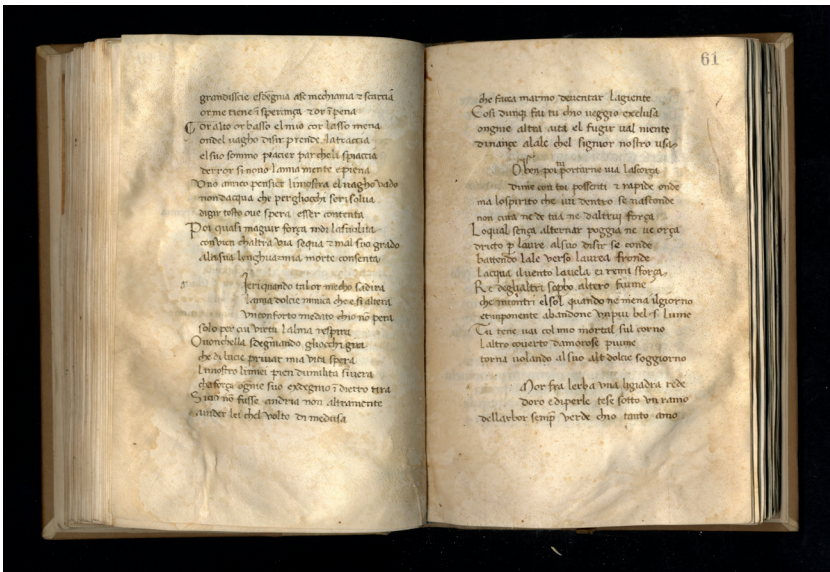 grandissie esdegna ase mechiama & scaccia
or me tiene ī sperança & or ī pena
Or alto or basso el mio cor lasso mena
ondel uagho disir prende la traccia
el suo sommo piacer par che li spiaccia
derror si nouo la mia mente e piena
Uno amico pensier li mostra el uagho uado
non dacqua che per gliocchi sorisolua
da gir tosto oue spera esser contenta
Poi quasi magiur força indi la suolua
conuien chaltra uia sequa & mal suo grado
ala sua lengha & mia morte consenta
Ieri quando talor mecho sadira
la mia dolcie nimica che e si altera
un conforto me dato chio nō pera
solo per cui uirtu lalma respira
Ouonchella sdegnando gliocchi gira
che di lucie priuar mia uita spera
li mostro li miei pien dumilita si uera
cha força ognie suo exdegnio ī dietro tira
Se cio nō fusse andria non altramente
a ueder lei chel uolto di medusa
61
che facea marmo deuentar la giente
Cosi dunqꝫ fai tu chio ueggio exclusa
ongnie altra aita el fugir ual niente
dinançe alale chel signior nostro usa
O ben poi tu portarne uia la scorça
di me con toi possenti & rapide onde
ma lo spirito che iui dentro se nasconde
non cura ne de tua ne daltrui força
Lo qual sença alternar poggia ne ue orça
dricto p laure al suo disir se conde
battendo lale uerso laurea fronde
lacqua el uento la uela e i remi sforça
Re degli altri sopbo altero fiume
che incontri el sol quando ne mena il giorno
et imponente abandone un piu bel s lume
Tu tene uai col mio mortal sul corno
laltro couerto damorose piume
torna uolando al suo alt dolcie soggiorno
Amor fra lerba una ligiadra rede
doro e di perle tese sotto un ramo
dellarbor semp̄ uerde chio tanto amo